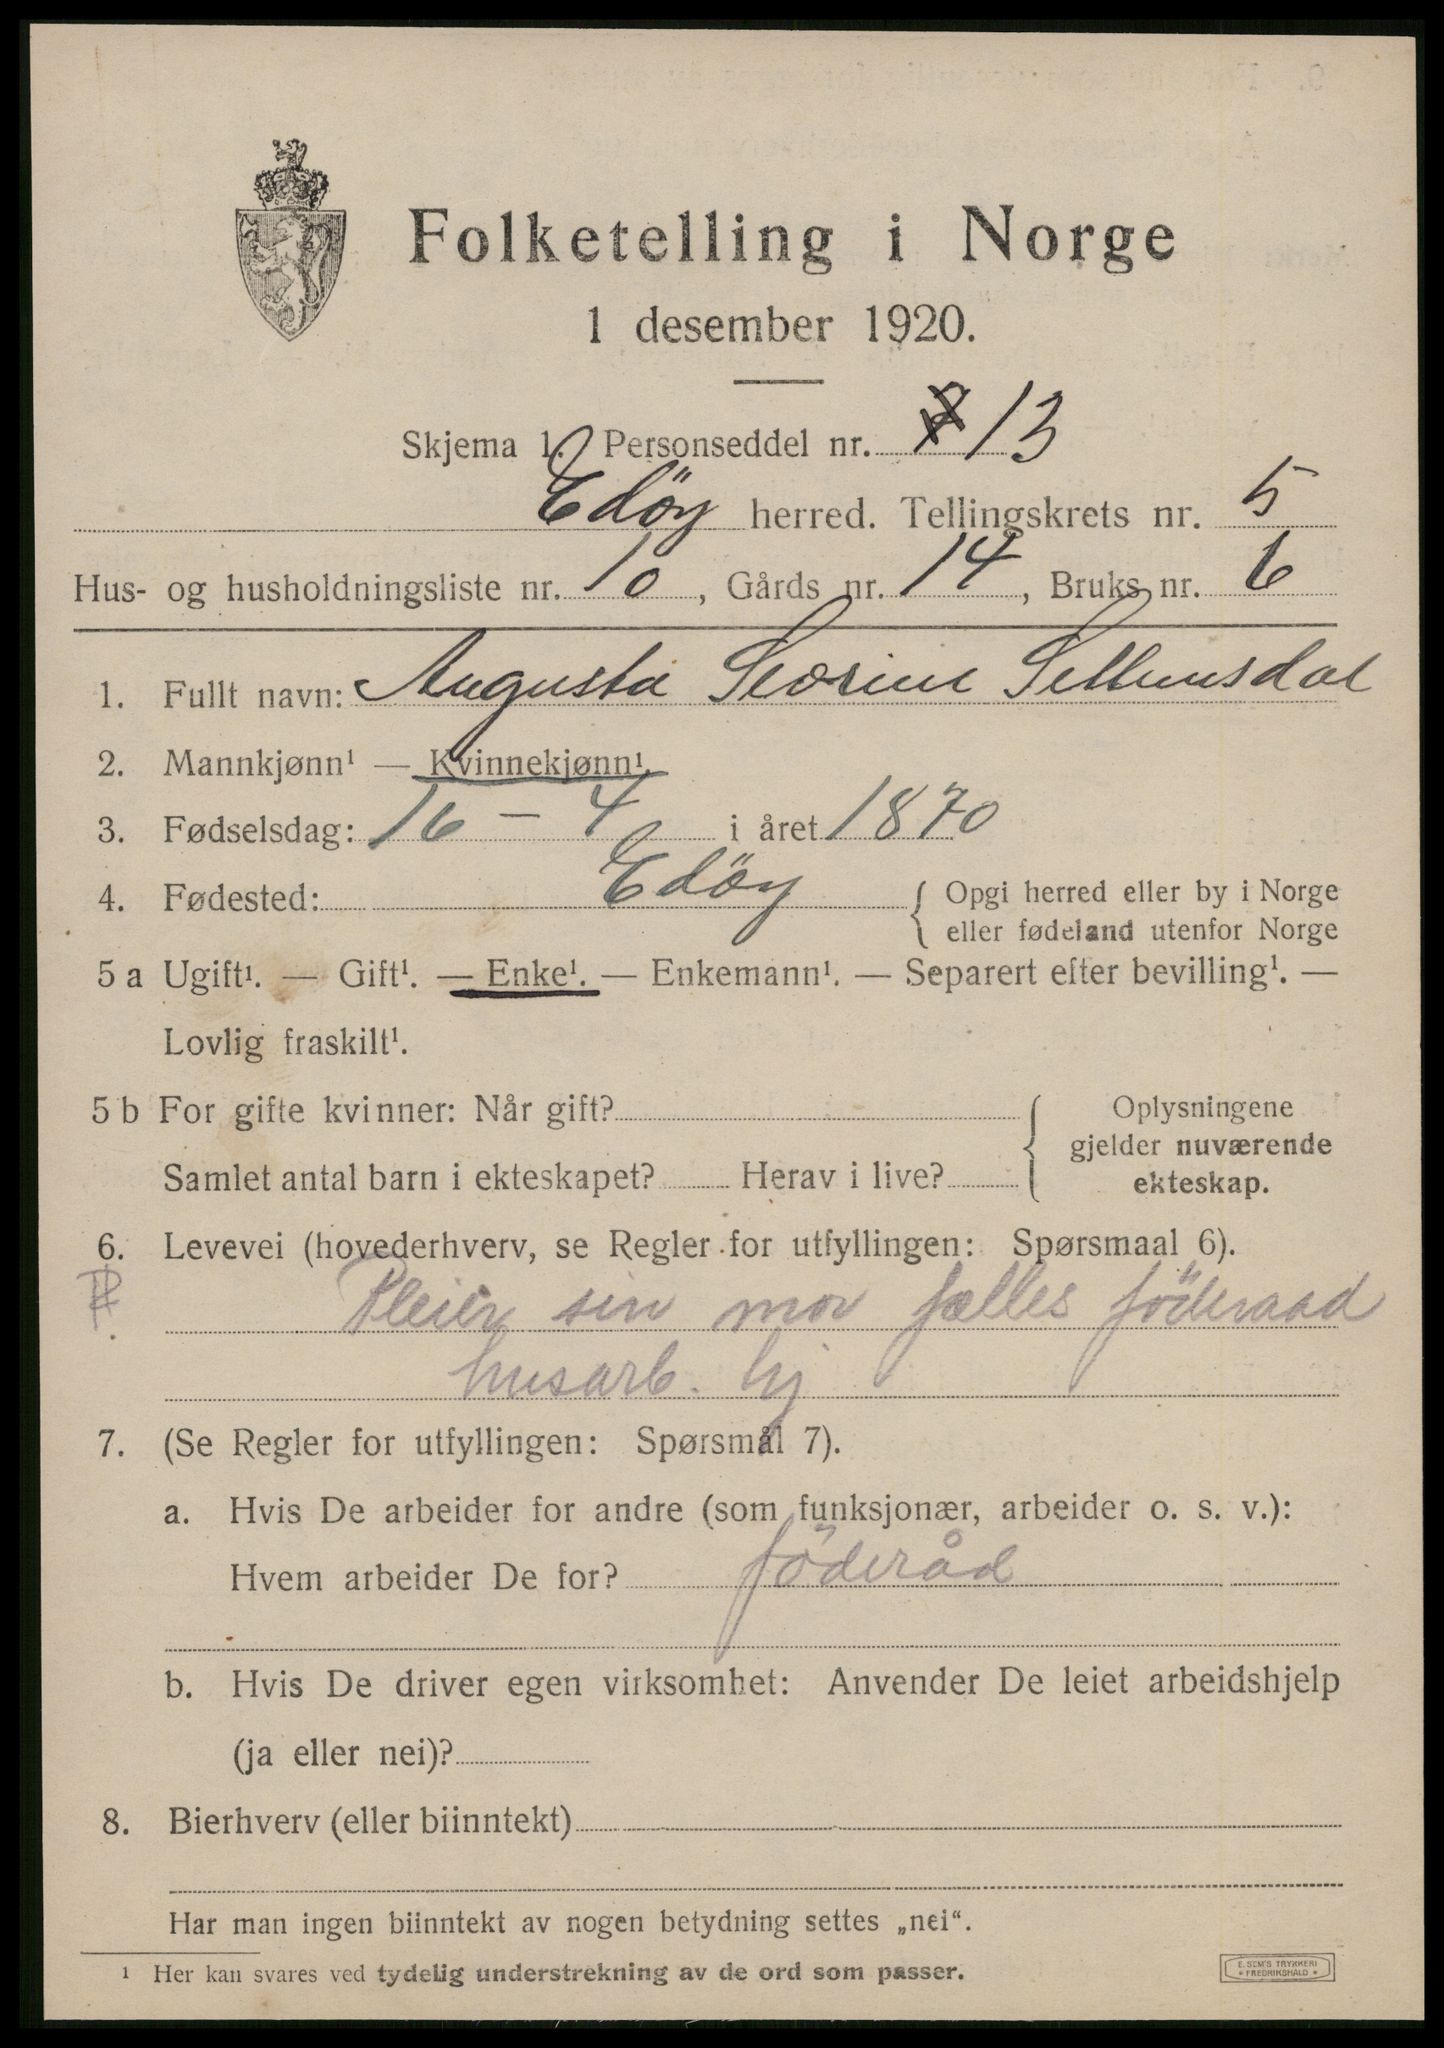 Folketelling i Norge
1 desember 1920.
Skjema 1. Personseddel nr. 13
Edöy herred. Tellingskrets nr. 5
Hus- og husholdningsliste nr. 10, Gårds nr. 14, Bruks nr. 6
1. Fullt navn: Augusta
2. Mannkjønn¹ — Kvinnekjønn¹.
3. Fødselsdag: 16 - 4 i året 1870
4. Fødested: Edöy { Opgi herred eller by i Norge
eller fødeland utenfor Norge
5 a Ugift¹. — Gift¹. — Enke¹. — Enkemann¹. — Separert efter bevilling¹. —
Lovlig fraskilt¹.
5 b For gifte kvinner: Når gift? { Oplysningene
gjelder nuværende
Samlet antal barn i ekteskapet? Herav i live? ekteskap.
6. Levevei (hovederhverv, se Regler for utfyllingen: Spørsmaal 6).
Pleier sin mor fælles föderaad
husarb. hj
7. (Se Regler for utfyllingen: Spørsmål 7).
a. Hvis De arbeider for andre (som funksjonær, arbeider o. s. v.):
Hvem arbeider De for? föderåd
b. Hvis De driver egen virksomhet: Anvender De leiet arbeidshjelp
(ja eller nei)?
8. Bierhverv (eller biinntekt)
Har man ingen biinntekt av nogen betydning settes „nei“.
¹ Her kan svares ved tydelig understrekning av de ord som passer.
E. SEM'S TRYKKERI
FREDRIKSHALD